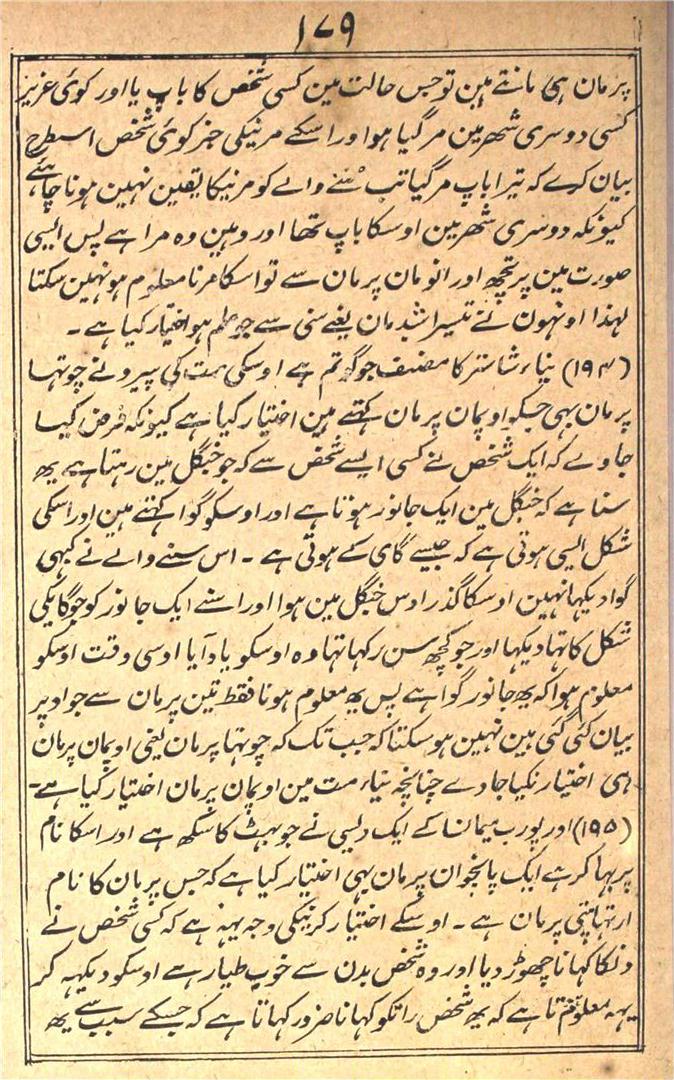 ۱۷۹
پرمان ہی مانتے ہین تو جس حالت مین کسی شخص کا باپ یا اور کوئی عزیز
کسی دوسری شہر مین مر گیا ہوا اور اسکے مرنیکی خبر کوئی شخص اسطرح
بیان کرے کہ تیرا باپ مر گیا تب سننے والے کو مرنیکا یقین نہین ہونا چاہئے
کیونکہ دوسری شہر مین اوسکا باپ تھا اور وہین وہ مرا ہے پس ایسی
صورت مین پرتچھ اور انومان پرمان سے تو اسکا مرنا معلوم ہو نہین سکتا
لہذا اونہون نے تیسرا شبد مان یعنے سنی سے جو علم ہو اختیار کیا ہے ۔
(۱۹۴) نیاء شاستر کا مصنف جو گوتم ہے اوسکی مت کی پیرو نے چوتہا
پرمان بہی جسکو اوپمان پرمان کہتے ہین اختیار کیا ہے کیونکہ فرض کیا
جاوے کہ ایک شخص نے کسی ایسے شخص سے کہ جو جنگل مین رہتا ہے یھ
سنا ہے کہ جنگل مین ایک جانور ہوتا ہے اور اوسکو گوا کہتے ہین اور اسکی
شکل ایسی ہوتی ہے کہ جیسے گای کے ہوتی ہے ۔ اس سننے والے نے کبہی
گوا دیکہا نہین اوسکا گذر اوس جنگل مین ہوا اور اسنے ایک جانور کو جو گائیکی
شکل کا تہا دیکہا اور جو کچھ سن رکہا تہا وہ اوسکو یاد آیا اوسی وقت اوسکو
معلوم ہوا کہ یھ جانور گوا ہے پس یھ معلوم ہونا فقط تین پرمان سے جو اوپر
بیان کئی گئی ہین نہین ہو سکتا کہ جب تک کہ چوتہا پرمان یعنی اوپمان پرمان
ہی اختیار نکیا جاوے چنانچہ نیاء مت مین اوپمان پرمان اختیار کیا ہے ۔
(۱۹۵) اور پورب میمانسا کے ایک دیسی نے جو بہٹ کا سکھ ہے اور اسکا نام
پربہاکر ہے ایک پانچوان پرمان بہی اختیار کیا ہے کہ جس پرمان کا نام
ارتہاپتی پرمان ہے ۔ اوسکے اختیار کرنیکی وجہ یہہ ہے کہ کسی شخص نے
دنکا کہانا چھوڑ دیا اور وہ شخص بدن سے خوب طیار ہے اوسکو دیکہہ کر
یہہ معلوم ہوتا ہے کہ یھ شخص راتکو کہانا ضرور کہاتا ہے کہ جسکے سبب سے یھ